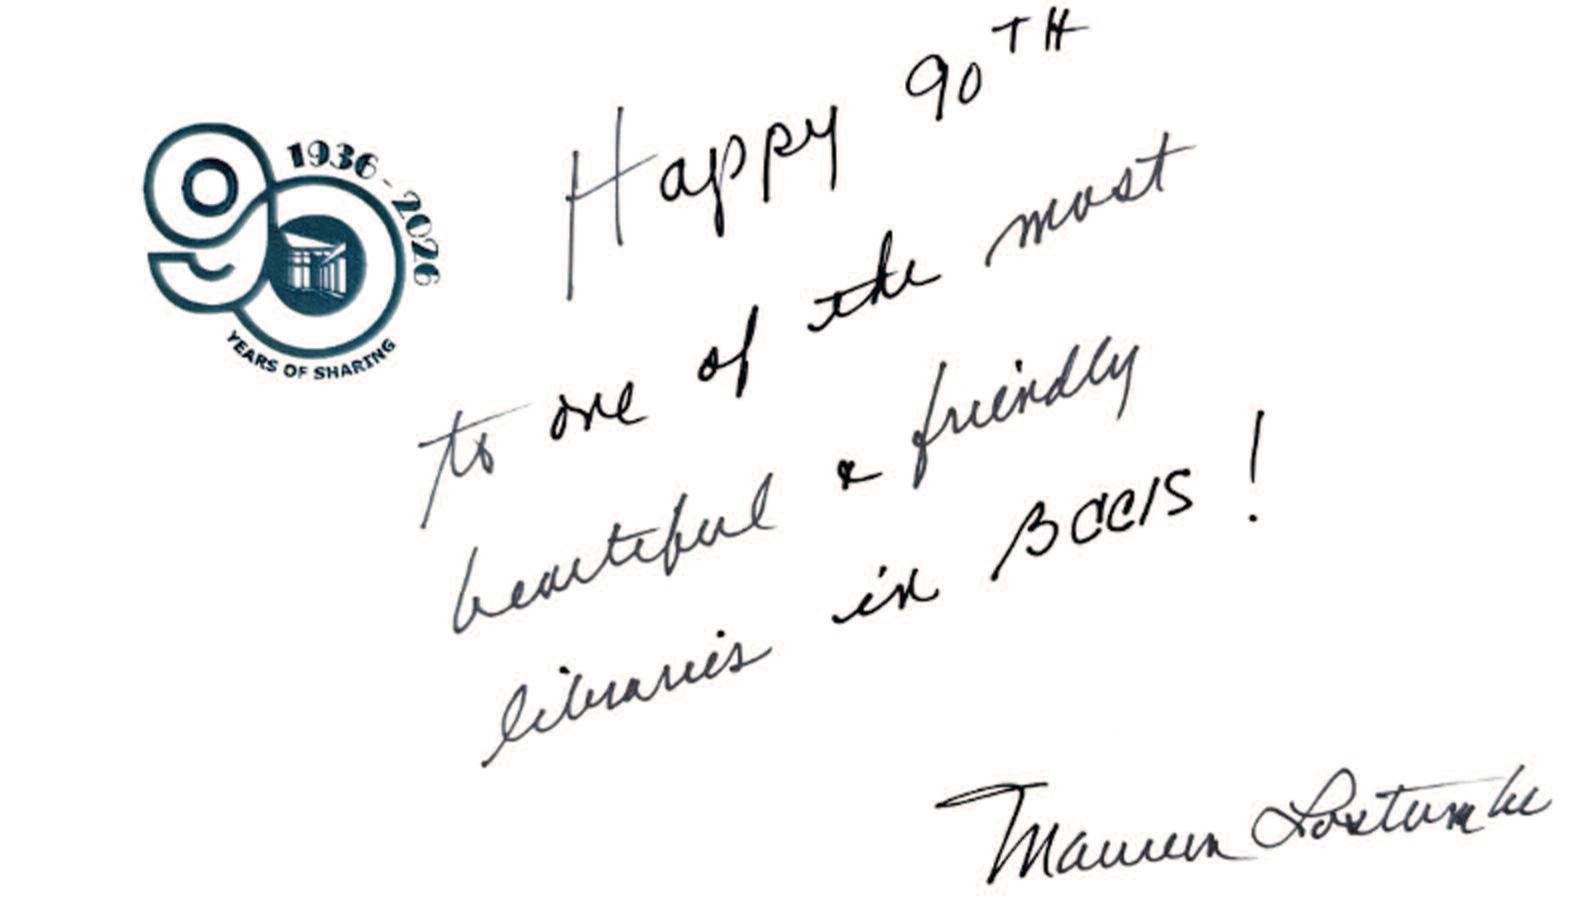 1936-2026
YEARS OF SHARING
Happy 90TH
to one of the most
beautiful & friendly
libraries in BCCLS!
Maureen